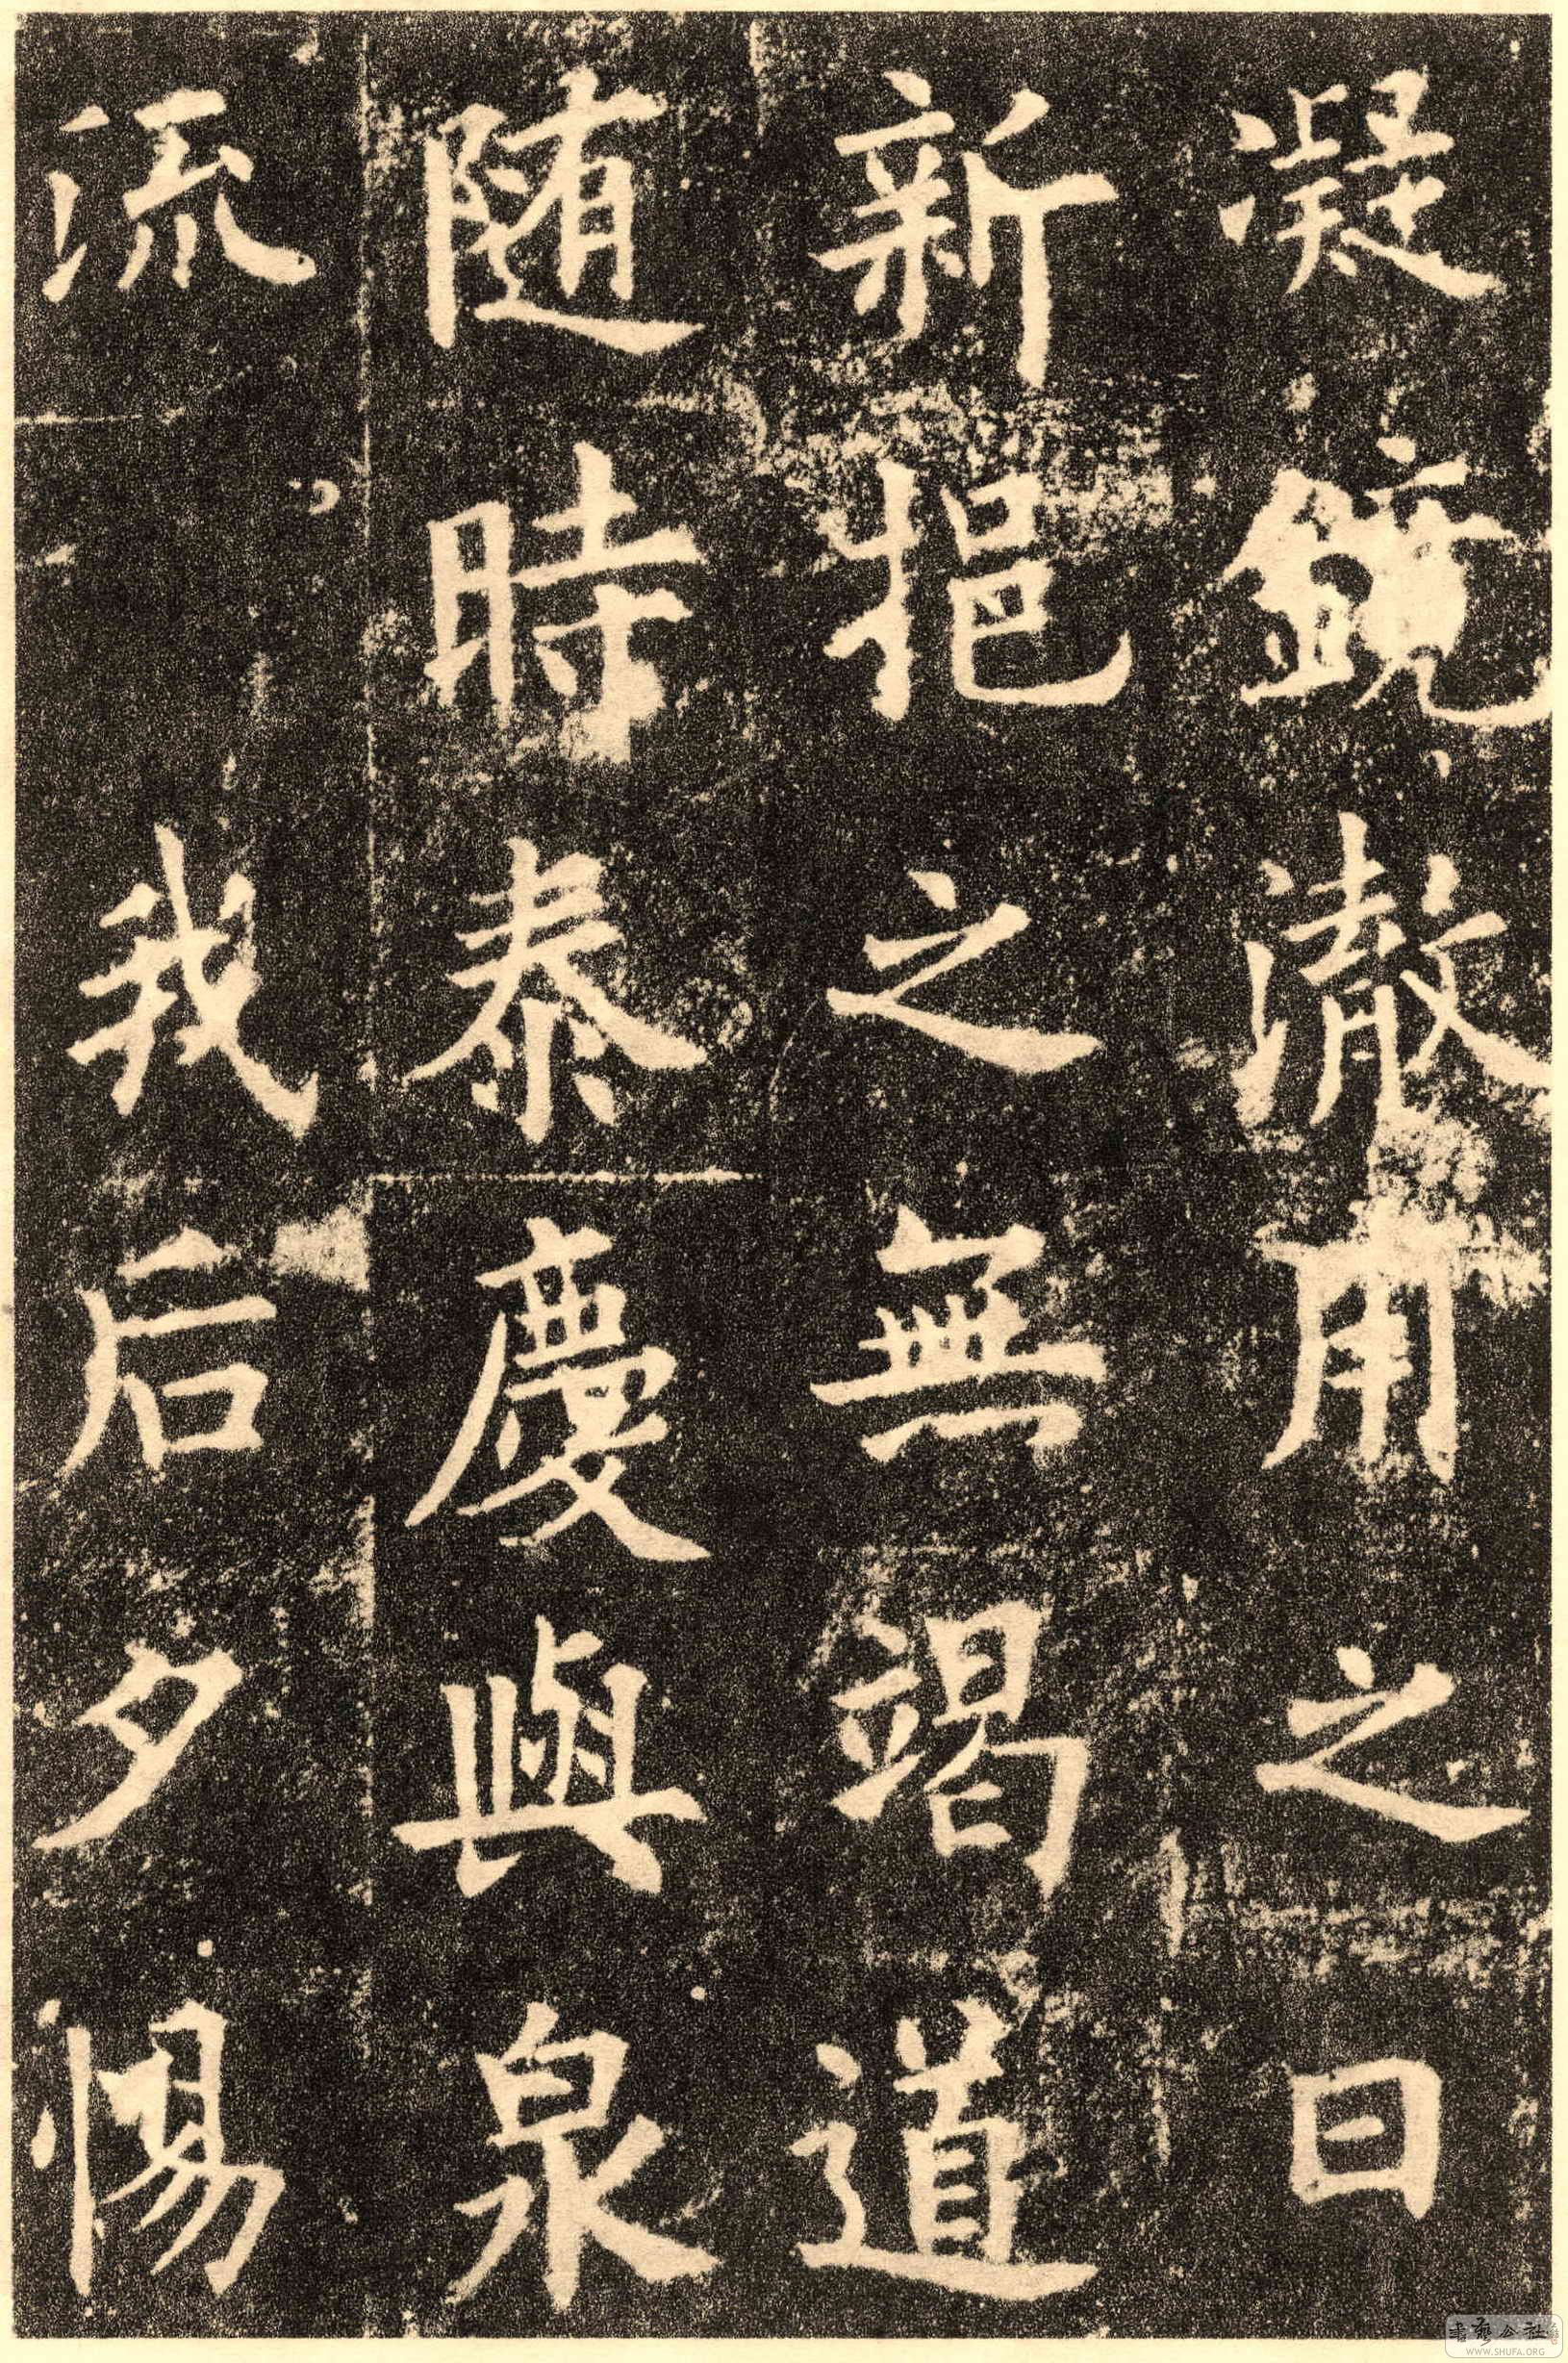 凝鏡澈用之日
新挹之無竭道
随時泰慶與泉
流我后夕惕
書藝公社
WWW.SHUFA.ORG